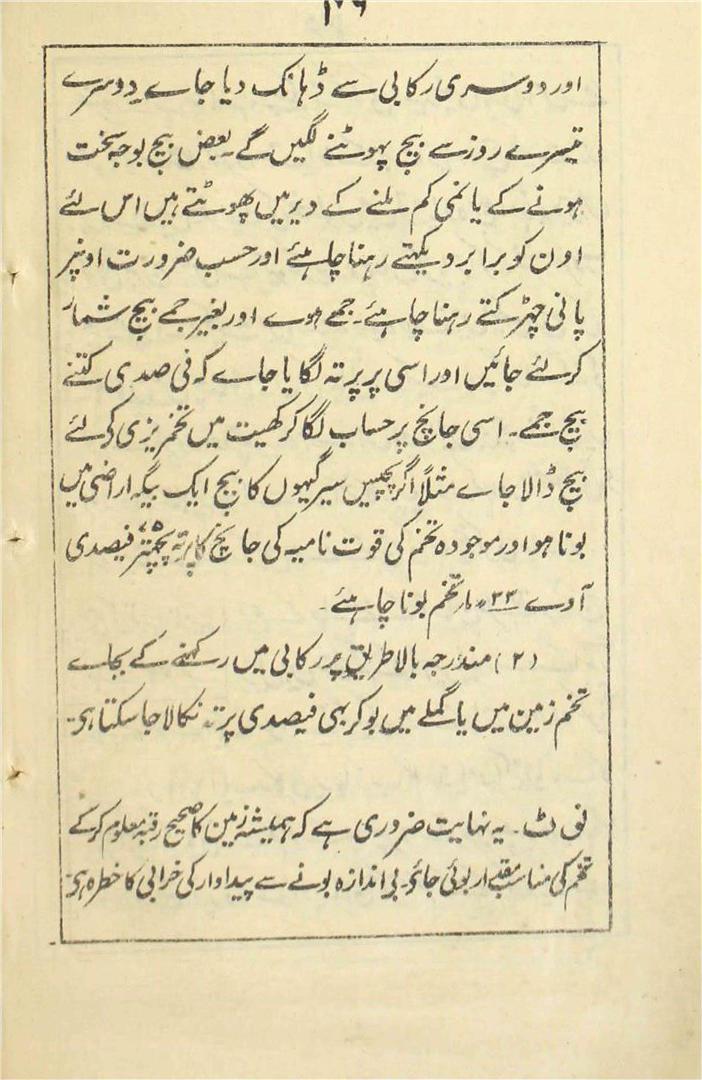 اور دوسری رکابی سے ڈہانک دیا جاے۔ دوسرے
تیسرے روز سے بیج پہوٹنے لگیں گے۔ بعض بیج بوجہ سخت
ہونے کے یا نمی کم ملنے کے دیر میں پھوٹتے ہیں اس لئے
اون کو برابر دیکہتے رہنا چاہئے اور حسب ضرورت اونپر
پانی چھڑکتے رہنا چاہئے۔ جمے ہوے اور بغیر جمے بیج شمار
کرلئے جائیں اور اسی پر پرتہ لگایا جاے کہ فی صدی کتنے
بیج جمے۔ اسی جانچ پر حساب لگا کر کھیت میں تخمریزی کے لئے
بیج ڈالا جاے مثلاً اگر پچیس سیر گیہوں کا بیج ایک بیگہ اراضی میں
بونا ہو اور موجودہ تخم کی قوت نامیہ کی جانچ کا پرتہ پچہتر فیصدی
آوے تخم بونا چاہئے۔
(۲) مندرجہ بالا طریق پر رکابی میں رکہنے کے بجاے
تخم زمین میں یا گملے میں بو کر بہی فیصدی پرتہ نکالا جا سکتا ہے۔
نوٹ۔ یہ نہایت ضروری ہے کہ ہمیشہ زمین کا صحیح رقبہ معلوم کرکے
تخم کی مناسب مقدار بوئی جائے۔ بی اندازہ بونے سے پیداوار کی خرابی کا خطرہ ہے۔